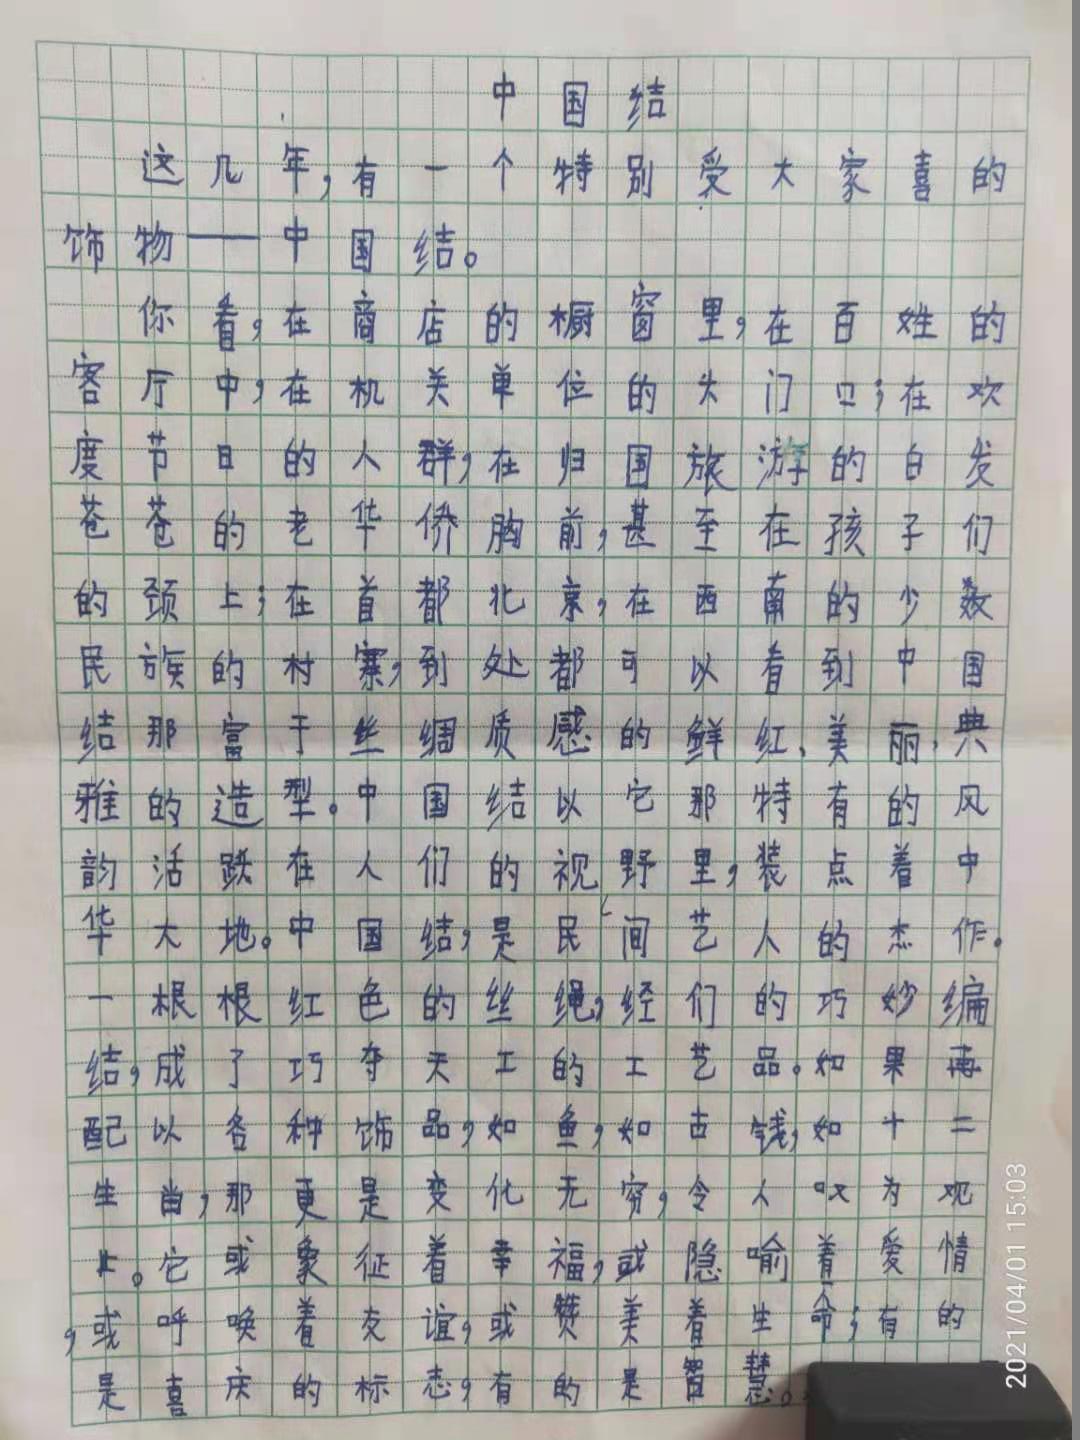 中国结
这几年,有一个特别受大家喜的
饰物——中国结。
你看,在商店的橱窗里,在百姓的
客厅中,在机关单位的大门口;在欢
度节日的人群,在归国旅游的白发
苍苍的老华侨胸前,甚至在孩子们
的颈上;在首都北京,在西南的少数
民族的村寨,到处都可以看到中国
结那富于丝绸质感的鲜红、美丽,典
雅的造型。中国结以它那特有的风
韵活跃在人们的视野里,装点着中
华大地。中国结,是民间艺人的杰作。
一根根红色的丝绳,经们的巧妙编
结,成了巧夺天工的工艺品。如果再
配以各种饰品,如鱼,如古钱,如十二
生肖,那更是变化无穷,令人叹为观
止。它或象征着幸福,或隐喻着爱情
,或呼唤着友谊,或赞美着生命;有的
是喜庆的标志,有的是智慧。
2021/04/01 15:03